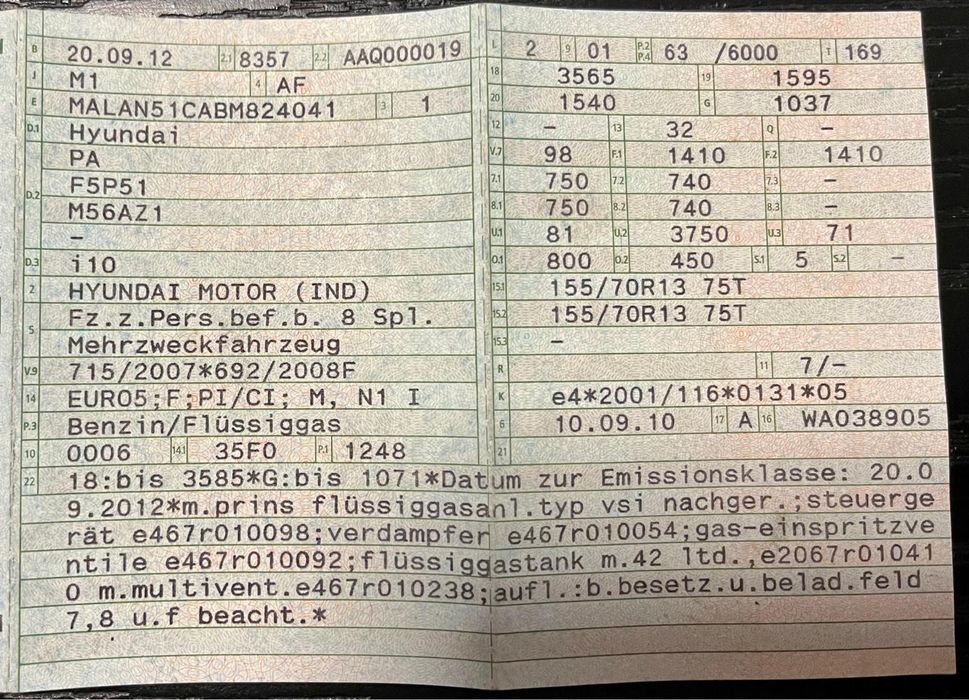 B 20.09.12 2.1 8357 2.2 AAQ000019
J M1 4 AF
E MALAN51CABM824041 3 1
D.1 Hyundai
D.2 PA
F5P51
M56AZ1
–
D.3 i10
2 HYUNDAI MOTOR (IND)
5 Fz.z.Pers.bef.b. 8 Spl.
Mehrzweckfahrzeug
V.9 715/2007*692/2008F
14 EURO5;F;PI/CI; M, N1 I
P.3 Benzin/Flüssiggas
10 0006 14.1 35F0 P.1 1248
L 2 9 01 P.2 P.4 63 /6000 T 169
18 3565 19 1595
20 1540 G 1037
12 – 13 32 Q –
V.7 98 F.1 1410 F.2 1410
7.1 750 7.2 740 7.3 –
8.1 750 8.2 740 8.3 –
U.1 81 U.2 3750 U.3 71
O.1 800 O.2 450 S.1 5 S.2 –
15.1 155/70R13 75T
15.2 155/70R13 75T
15.3 –
R 11 7/–
K e4*2001/116*0131*05
6 10.09.10 17 A 16 WA038905
21
22 18:bis 3585*G:bis 1071*Datum zur Emissionsklasse: 20.0
9.2012*m.prins flüssiggasanl.typ vsi nachger.;steuerge
rät e467r010098;verdampfer e467r010054;gas-einspritzve
ntile e467r010092;flüssiggastank m.42 ltd.,e2067r01041
0 m.multivent.e467r010238;aufl.:b.besetz.u.belad.feld
7,8 u.f beacht.*